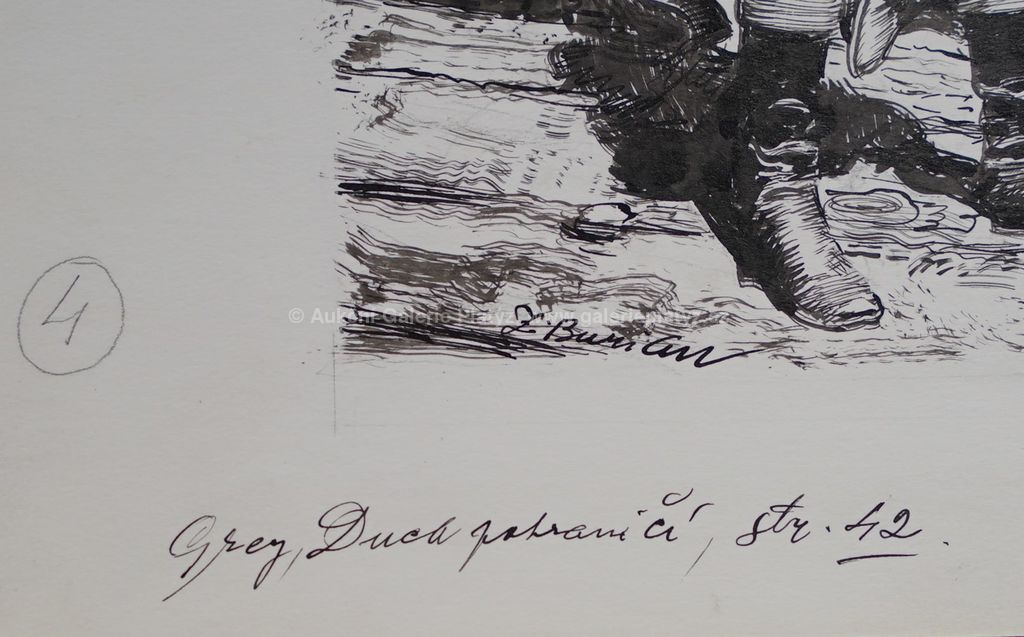 4
© Aukční Galerie Platýz, www.galerieplatyz.cz
Z Burian
Grey, Duch pohraničí, str. 42.